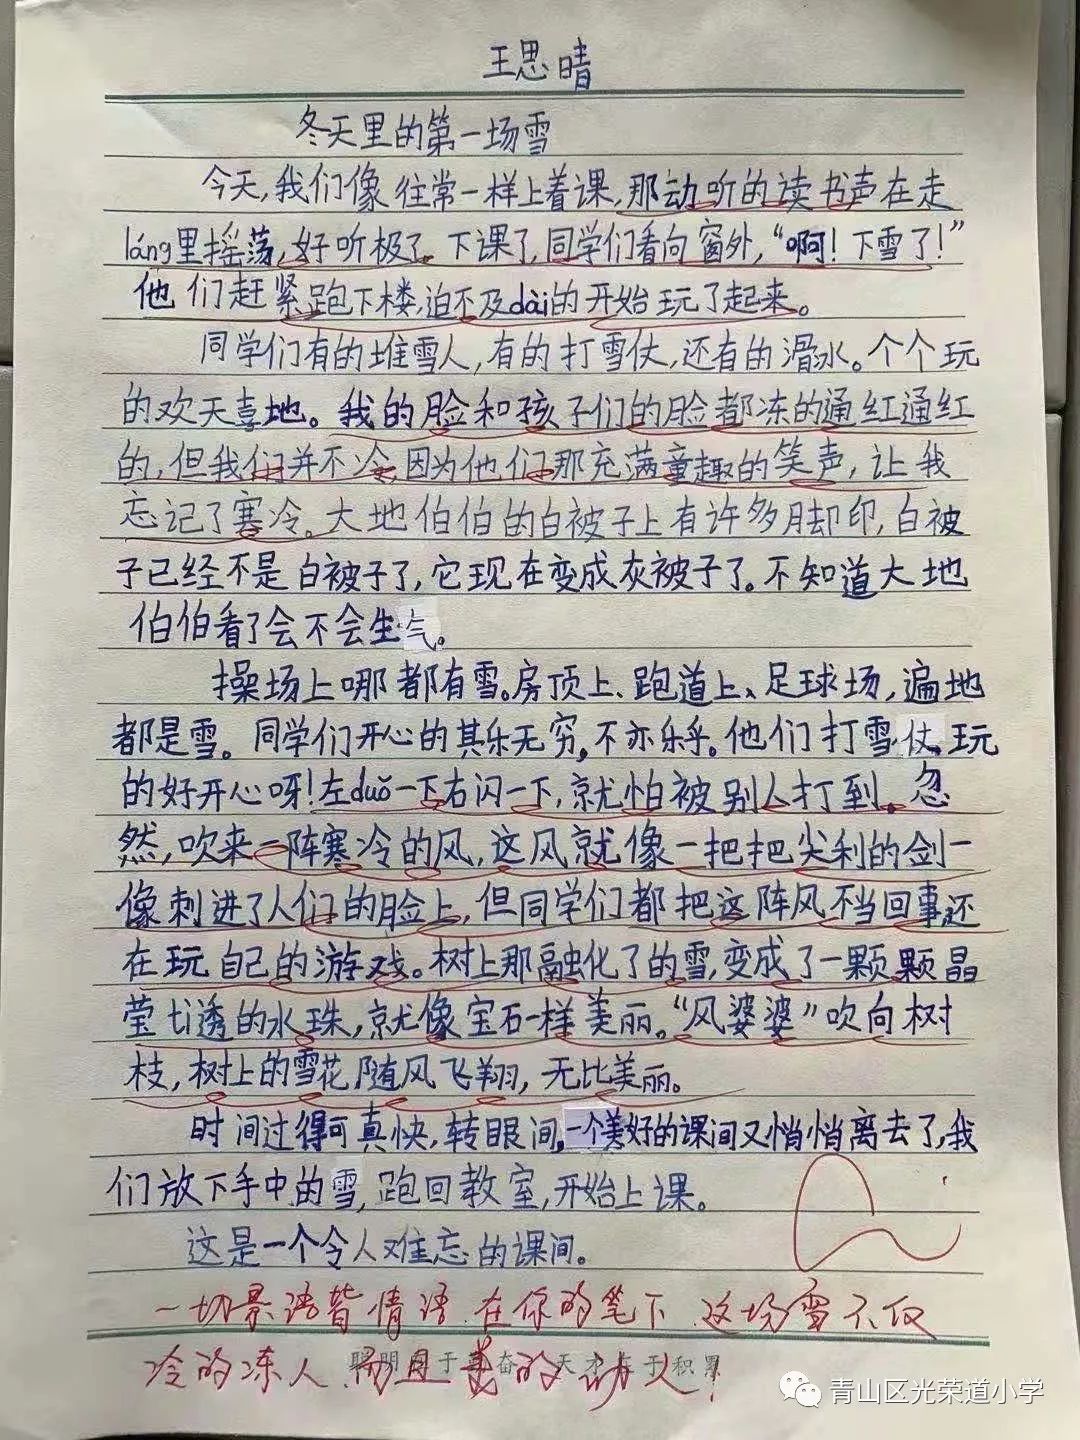 王思晴
冬天里的第一场雪
今天,我们像往常一样上着课,那动听的读书声在走
láng里摇荡,好听极了。下课了,同学们看向窗外,“啊!下雪了!”
他们赶紧跑下楼,迫不及dài的开始玩了起来。
同学们有的堆雪人,有的打雪仗,还有的滑冰。个个玩
的欢天喜地。我的脸和孩子们的脸都冻的通红通红
的,但我们并不冷,因为他们那充满童趣的笑声,让我
忘记了寒冷。大地伯伯的白被子上有许多脚印,白被
子已经不是白被子了,它现在变成灰被子了。不知道大地
伯伯看了会不会生气。
操场上哪都有雪。房顶上、跑道上、足球场,遍地
都是雪。同学们开心的其乐无穷,不亦乐乎。他们打雪仗,玩
的好开心呀!左duǒ一下右闪一下,就怕被别人打到。忽
然,吹来一阵寒冷的风,这风就像一把把尖利的剑一
像刺进了人们的脸上,但同学们都把这阵风不当回事,还
在玩自己的游戏。树上那融化了的雪,变成了一颗颗晶
莹tī透的水珠,就像宝石一样美丽。“风婆婆”吹向树
枝,树上的雪花随风飞翔,无比美丽。
时间过得可真快,转眼间,一个美好的课间又悄悄离去了,我
们放下手中的雪,跑回教室,开始上课。
这是一个令人难忘的课间。
一切景语皆情语.在你的笔下.这场雪不仅
冷的冻人,而且美的动人!
聪明于奋天才于积累
青山区光荣道小学